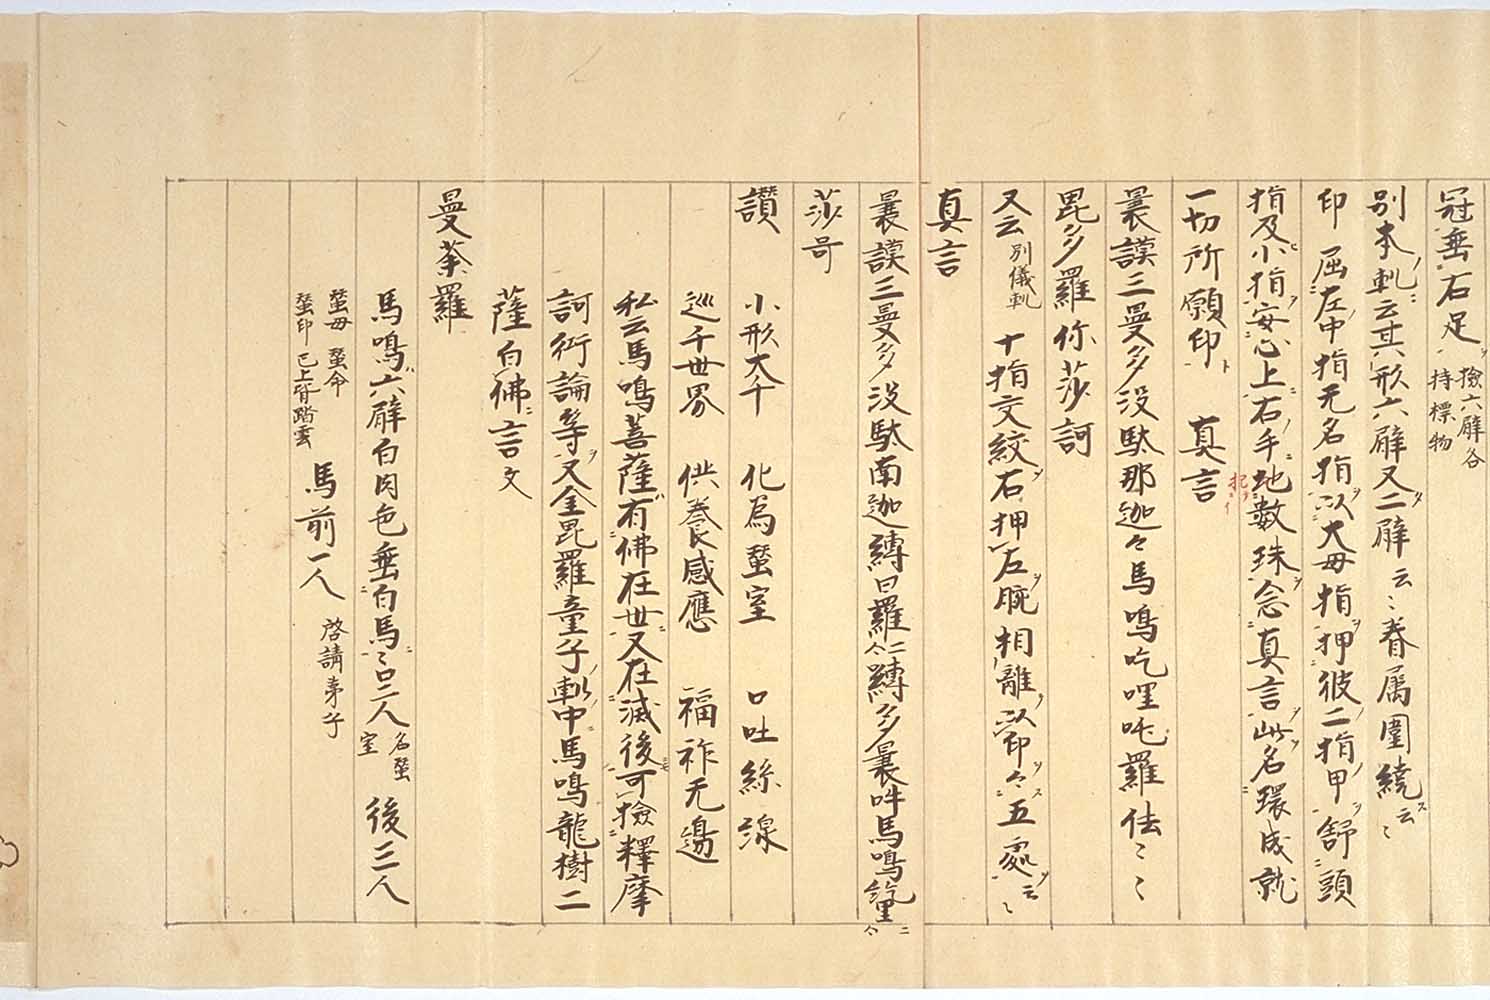 冠垂右足 撿六臂各持標物
別本軌云其形六臂又二臂云〻眷属圍繞云〻
印 屈左中指无名指以大母指押彼二指甲舒頭
指及小指安心上右手地數珠念真言此名環成就
把イ
一切所願印 真言
曩謨三曼多没駄那迦々馬鳴吃哩吒羅佉〻〻
毘多羅你莎訶
又云 別儀軌 十指交絞右押左腕相離以印々五處云〻
真言
曩謨三曼多没駄南迦縛日羅二合縛多曩吽馬鳴紇里二合
莎哥
讃 小形大千 化為蚕室 口吐絲線
巡千世界 供養感應 福祚无邊
私云馬鳴菩薩有佛在世又在滅後可撿釋摩
訶衍論等又金毘羅童子軌中馬鳴龍樹二
薩白佛言文
曼荼羅
馬鳴六臂白肉色垂白馬〻口二人 名蚕室 後三人
蚕母 蚕命 蚕印 已上皆踏雲 馬前一人 啓請弟子